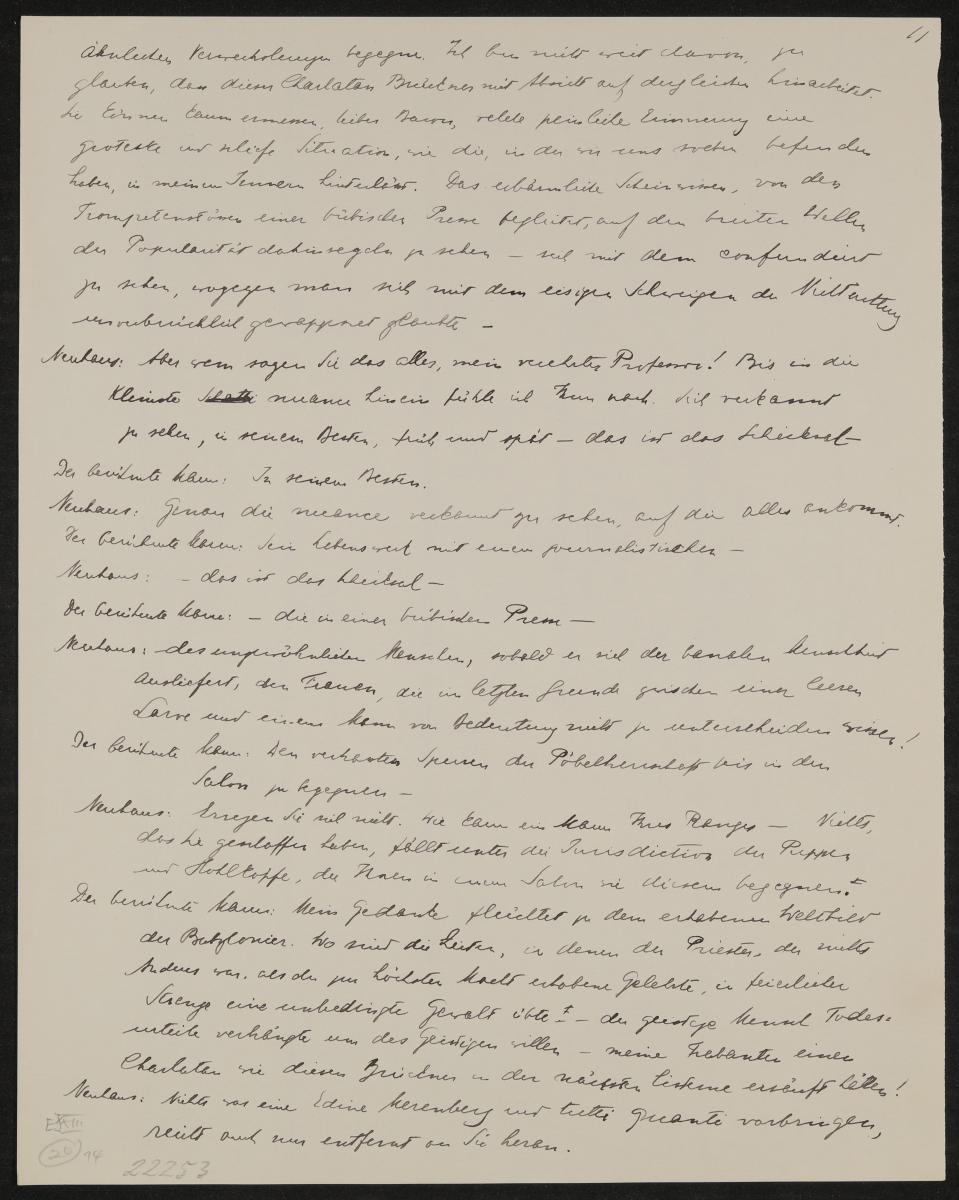 11
ähnlichen Verwechslungen begegne. Ich bin nicht weit davon, zu
glauben, dass dieser Charlatan Brückner mit Absicht auf dergleichen hinarbeitet.
Sie können kaum ermessen, lieber Baron, welche peinliche Erinnerung eine
groteske und schiefe Situation, wie die, in der wir uns soeben befunden
haben, in meinem Innern hinterlässt. Das erbärmliche Scheinwissen, von den
Trompetenstössen einer bübischen Presse begleitet, auf den breiten Wellen
der Popularität dahinsegeln zu sehen – sich mit dem confundiert
zu sehen, wogegen man sich mit dem eisigen Schweigen der Nichtachtung
unverbrüchlich gewappnet glaubte –
Neuhaus: Aber wem sagen Sie das alles, mein verehrter Professor! Bis in die
kleinste nuance hinein fühle ich Ihnen nach. Sich verkannt
zu sehen, in seinem Besten, früh und spät – das ist das Schicksal –
Der berühmte Mann: In seinem Besten.
Neuhaus: Genau die nuance verkannt zu sehen, auf die alles ankommt.
Der berühmte Mann: Sein Lebenswerk mit einem journalistischen –
Neuhaus: – das ist das Schicksal –
Der berühmte Mann: – die in einer bübischen Presse –
Neuhaus: des ungewöhnlichen Menschen, sobald er sich der banalen Menschheit
ausliefert, den Frauen, die im letzten Grunde zwischen einer leeren
Larve und einem Mann von Bedeutung nicht zu unterscheiden wissen!
Der berühmte Mann: Den verhassten Spuren der Pöbelherrschaft bis in den
Salon zu begegnen –
Neuhaus: Erregen Sie sich nicht. Wie kann ein Mann Ihres Ranges – Nichts,
das Sie geschaffen haben, fällt unter die Jurisdiction der Puppen
und Hohlköpfe, die Ihnen in einem Salon wie diesem begegnen!
Der berühmte Mann: Mein Gedanke flüchtet zu dem erhabenen Weltbild
der Babylonier. Wo sind die Zeiten, in denen der Priester, der nichts
Anderes war, als der zur höchsten Macht erhobene Gelehrte, in feierlicher
Strenge eine unbedingte Gewalt übte! – der geistige Mensch Todes=
urteile verhängte um des Geistigen willen – meine Trabanten einen
Charlatan wie diesen Brückner in der nächsten Cisterne ersäuft hätten!
Neuhaus: Nichts was eine Edine Merenberg und tutti quanti vorbringen,
reicht auch nur entfernt an Sie heran.
20
14
22253